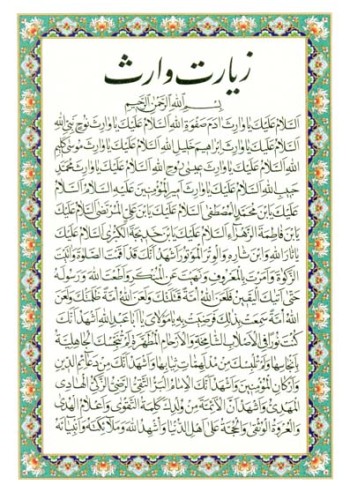 زیارت وارث
بِسْمِ اللهِ الرَّحْمٰنِ الرَّحيمِ
اَلسَّلامُ عَلَيْكَ يا وارِثَ ادَمَ صَفْوَةِ اللهِ اَلسَّلامُ عَلَيْكَ يا وارِثَ نوُحٍ نَبِيِّ اللهِ
اَلسَّلامُ عَلَيْكَ يا وارِثَ اِبْراهيمَ خَليلِ اللهِ اَلسَّلامُ عَلَيْكَ يا وارِثَ موُسى كَليمِ
اللهِ اَلسَّلامُ عَلَيْكَ يا وارِثَ عيسى روُحِ اللهِ اَلسَّلامُ عَلَيْكَ يا وارِثَ مُحَمَّدٍ
حَبيبِ اللهِ اَلسَّلامُ عَلَيْكَ يا وارِثَ اَميرِ الْمُؤْمِنينَ عَلَيْهِ السَّلامُ اَلسَّلامُ
عَلَيْكَ يَابْنَ مُحَمَّدٍ الْمُصْطَفى اَلسَّلامُ عَلَيْكَ يَابْنَ عَلِيٍّ الْمُرْتَضى اَلسَّلامُ عَلَيْكَ
يَابْنَ فاطِمَةَ الزَّهْراءِ اَلسَّلامُ عَلَيْكَ يَابْنَ خَديجَةَ الْكُبْرى اَلسَّلامُ عَلَيْكَ
يا ثارَ اللهِ وَابْنَ ثارِهِ وَالْوِتْرَ الْمَوْتوُرَ اَشْهَدُ اَنَّكَ قَدْ اَقَمْتَ الصَّلوةَ وَاتَيْتَ
الزَّكوةَ وَاَمَرْتَ بِالْمَعْروُفِ وَنَهَيْتَ عَنِ الْمُنْكَرِ وَاَطَعْتَ اللهَ وَرَسوُلَهُ
حَتّى اَتيكَ الْيَقينُ فَلَعَنَ اللهُ اُمَّةً قَتَلَتْكَ وَلَعَنَ اللهُ اُمَّةً ظَلَمَتْكَ وَلَعَنَ
اللهُ اُمَّةً سَمِعَتْ بِذلِكَ فَرَضِيَتْ بِهِ يا مَوْلايَ يا اَبا عَبْدِ اللهِ اَشْهَدُ اَنَّكَ
كُنْتَ نوُرًا فِي الْاَصْلابِ الشّامِخَةِ وَالْاَرْحامِ الْمُطَهَّرَةِ لَمْ تُنَجِّسْكَ الْجاهِلِيَّةُ
بِاَنْجاسِها وَلَمْ تُلْبِسْكَ مِنْ مُدْلَهِمّاتِ ثِيابِها وَاَشْهَدُ اَنَّكَ مِنْ دَعائِمِ الدّينِ
وَاَرْكانِ الْمُؤْمِنينَ وَاَشْهَدُ اَنَّكَ الْاِمامُ الْبَرُّ التَّقِيُّ الرَّضِيُّ الزَّكِيُّ الْهادِي
الْمَهْدِيُّ وَاَشْهَدُ اَنَّ الْاَئِمَّةَ مِنْ وُلْدِكَ كَلِمَةُ التَّقْوى وَاَعْلامُ الْهُدى
وَالْعُرْوَةُ الْوُثْقى وَالْحُجَّةُ عَلى اَهْلِ الدُّنْيا وَاُشْهِدُ اللهَ وَمَلائِكَتَهُ وَاَنْبِيائَهُ